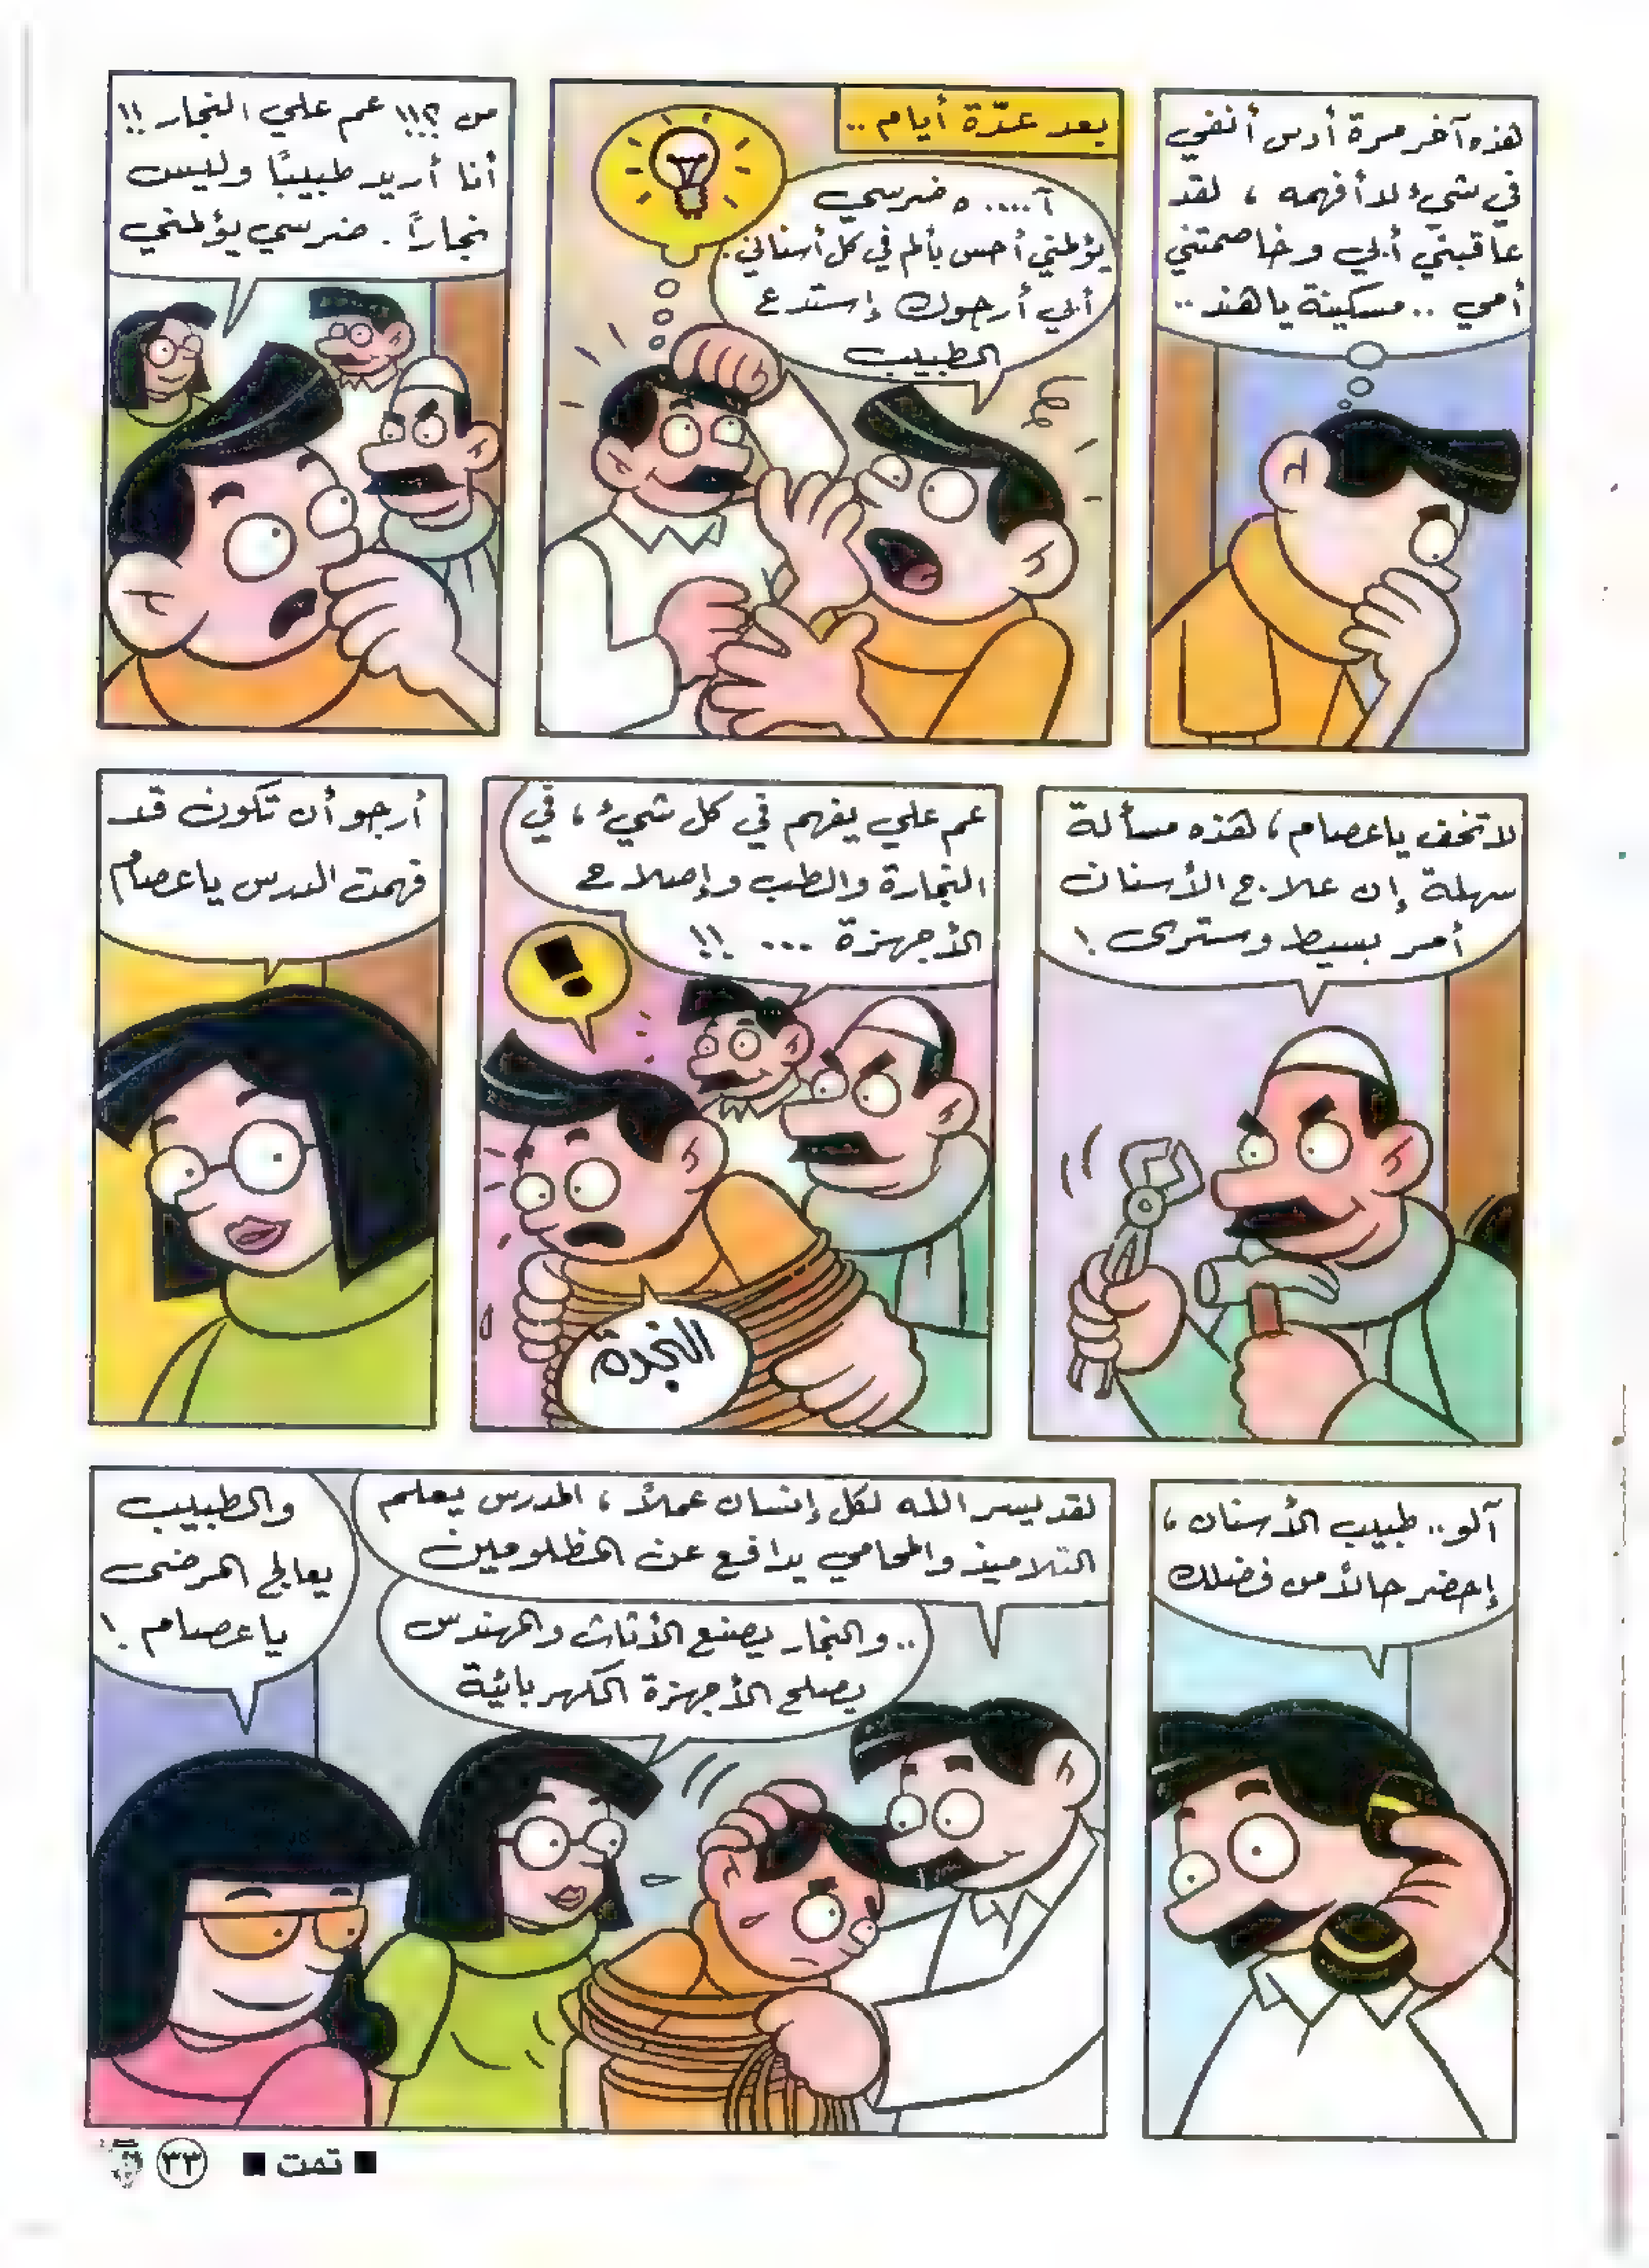 هذه آخر مرة أدس أنفي
في شيء لا أفهمه ، لقد
عاقبني أبي وخاصمتني
أمي .. مسكينة يا هند ..
بعد عدّة أيام ..
آ.... ه ضرسي
يؤلمني أحس بألم في كل أسناني .
أبي أرجوك إستدع
الطبيب
من ؟!!! عم علي النجار !!
أنا أريد طبيبًا وليس
نجارًا . ضرسي يؤلمني
لا تخف يا عصام ، هذه مسألة
سهلة إن علاج الأسنان
أمر بسيط وسترى !
عم علي يفهم في كل شيء ، في
النجارة والطب وإصلاح
الأجهزة ... !!
!
النجدة
أرجو أن تكون قد
فهمت الدرس يا عصام
آلو .. طبيب الأسنان ،
إحضر حالاً من فضلك
لقد يسر الله لكل إنسان عملاً ، المدرس يعلم
التلاميذ والمحامي يدافع عن المظلومين
.. والنجار يصنع الأثاث والمهندس
يصلح الأجهزة الكهربائية
والطبيب
يعالج المرضى
يا عصام !
■ تمت ■ ٣٣